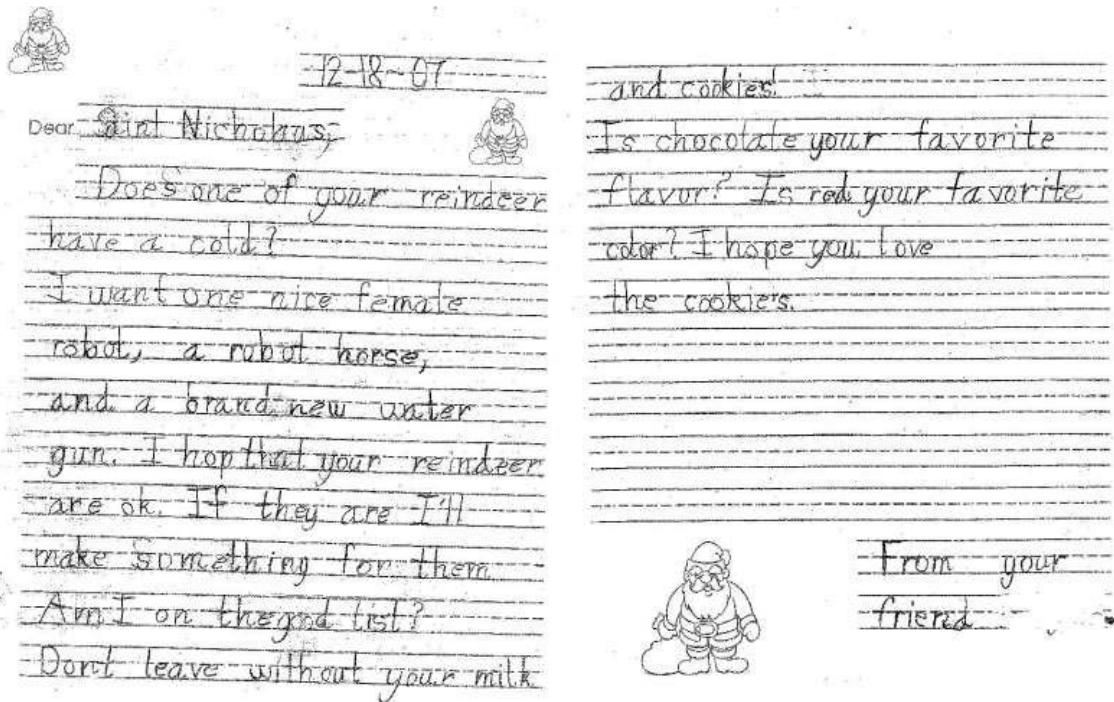 12-18-07
Dear Saint Nicholaus,
Does one of your reindeer
have a cold?
I want one nice female
robot, a robot horse,
and a brand new water
gun. I hop that your reindeer
are ok. If they are I'll
make something for them
Am I on the good list?
Don't leave without your milk
and cookies!
Is chocolate your favorite
flavor? Is red your favorite
color? I hope you love
the cookies.
From your
friend